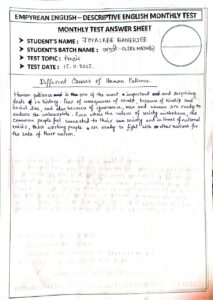 EMPYREAN ENGLISH – DESCRIPTIVE ENGLISH MONTHLY TEST
MONTHLY TEST ANSWER SHEET
➤ STUDENT'S NAME : JOYASREE BANERJEE
➤ STUDENT'S BATCH NAME :
➤ TEST TOPIC : Precis
➤ TEST DATE : 15.11.2025.
Different Causes of Human Patience
Human patience is one of the most important and surprising
facts of in history. Fear of consequences of revolt, because of kinship and
social ties, and also because of ignorance, men and women are ready to
endure the unbearable. Even when the rulers of society misbehave, the
common people feel connected to their own society and in times of national
crisis, these working people are ready to fight with other nation for
the sake of their nation.